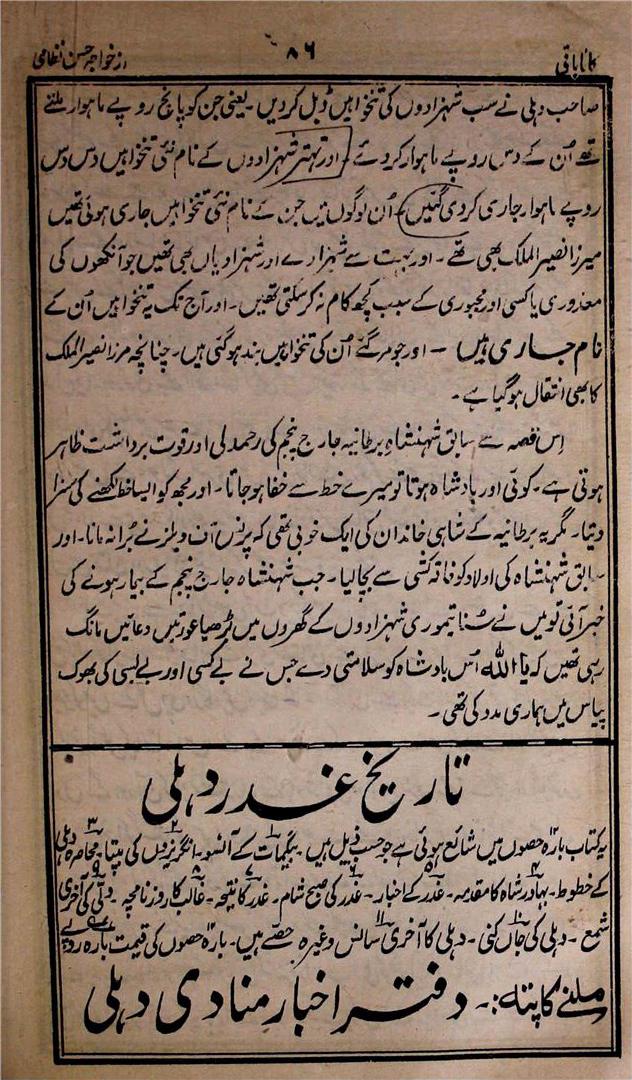 کانا باتی
۸۶
از خواجہ حسن نظامی
صاحب دہلی نے سب شہزادوں کی تنخواہیں ڈبل کر دیں۔ یعنی جن کو پانچ روپے ماہوار ملتے
تھے اُن کے دس روپے ماہوار کر دئے۔ اور تہتر شہزادوں کے نام نئی تنخواہیں دس دس
روپے ماہوار جاری کر دی گئیں۔ اُن لوگوں میں جن کے نام نئی تنخواہیں جاری ہوئی تھیں
میرزا نصیر الملک بھی تھے۔ اور بہت سے شہزادے اور شہزادیاں بھی تھیں جو آنکھوں کی
معذوری یا کسی اور مجبوری کے سبب کچھ کام نہ کر سکتی تھیں۔ اور آج تک یہ تنخواہیں اُن کے
نام جاری ہیں ۔ اور جو مر گئے اُن کی تنخواہیں بند ہو گئی ہیں۔ چنانچہ مرزا نصیر الملک
کا بھی انتقال ہو گیا ہے۔
اِس قصہ سے سابق شہنشاہِ برطانیہ جارج پنجم کی رحمدلی اور قوت برداشت ظاہر
ہوتی ہے۔ کوئی اور بادشاہ ہوتا تو میرے خط سے خفا ہو جاتا۔ اور مجھ کو ایسا خط لکھنے کی سزا
دیتا۔ مگر یہ برطانیہ کے شاہی خاندان کی ایک خوبی تھی کہ پرنس آف ویلز نے بُرا نہ مانا۔ اور
سابق شہنشاہ کی اولاد کو فاقہ کشی سے بچا لیا۔ جب شہنشاہ جارج پنجم کے بیمار ہونے کی
خبر آئی تو میں نے سُنا تیموری شہزادوں کے گھروں میں بُڑھیا عورتیں دعائیں مانگ
رہی تھیں کہ یا اللہ اُس بادشاہ کو سلامتی دے جس نے بے کسی اور بے بسی کی بھوک
پیاس میں ہماری مدد کی تھی۔
تاریخ غدر دہلی
یہ کتاب بارہ حصوں میں شائع ہوئی ہے جو حسب ذیل ہیں۔ بیگمات کے آنسو۔ انگریزوں کی بپتا۔ محاصرہ دہلی
کے خطوط۔ بہادر شاہ کا مقدمہ۔ غدر کے اخبار۔ غدر کی صبح شام۔ غدر کا نتیجہ۔ غالب کا روزنامچہ۔ دلی کی آخری
شمع ۔ دہلی کی جاں کنی۔ دہلی کا آخری سانس وغیرہ حصے ہیں۔ بارہ حصوں کی قیمت بارہ روپے
ملنے کا پتہ:۔ دفتر اخبار منادی دہلی